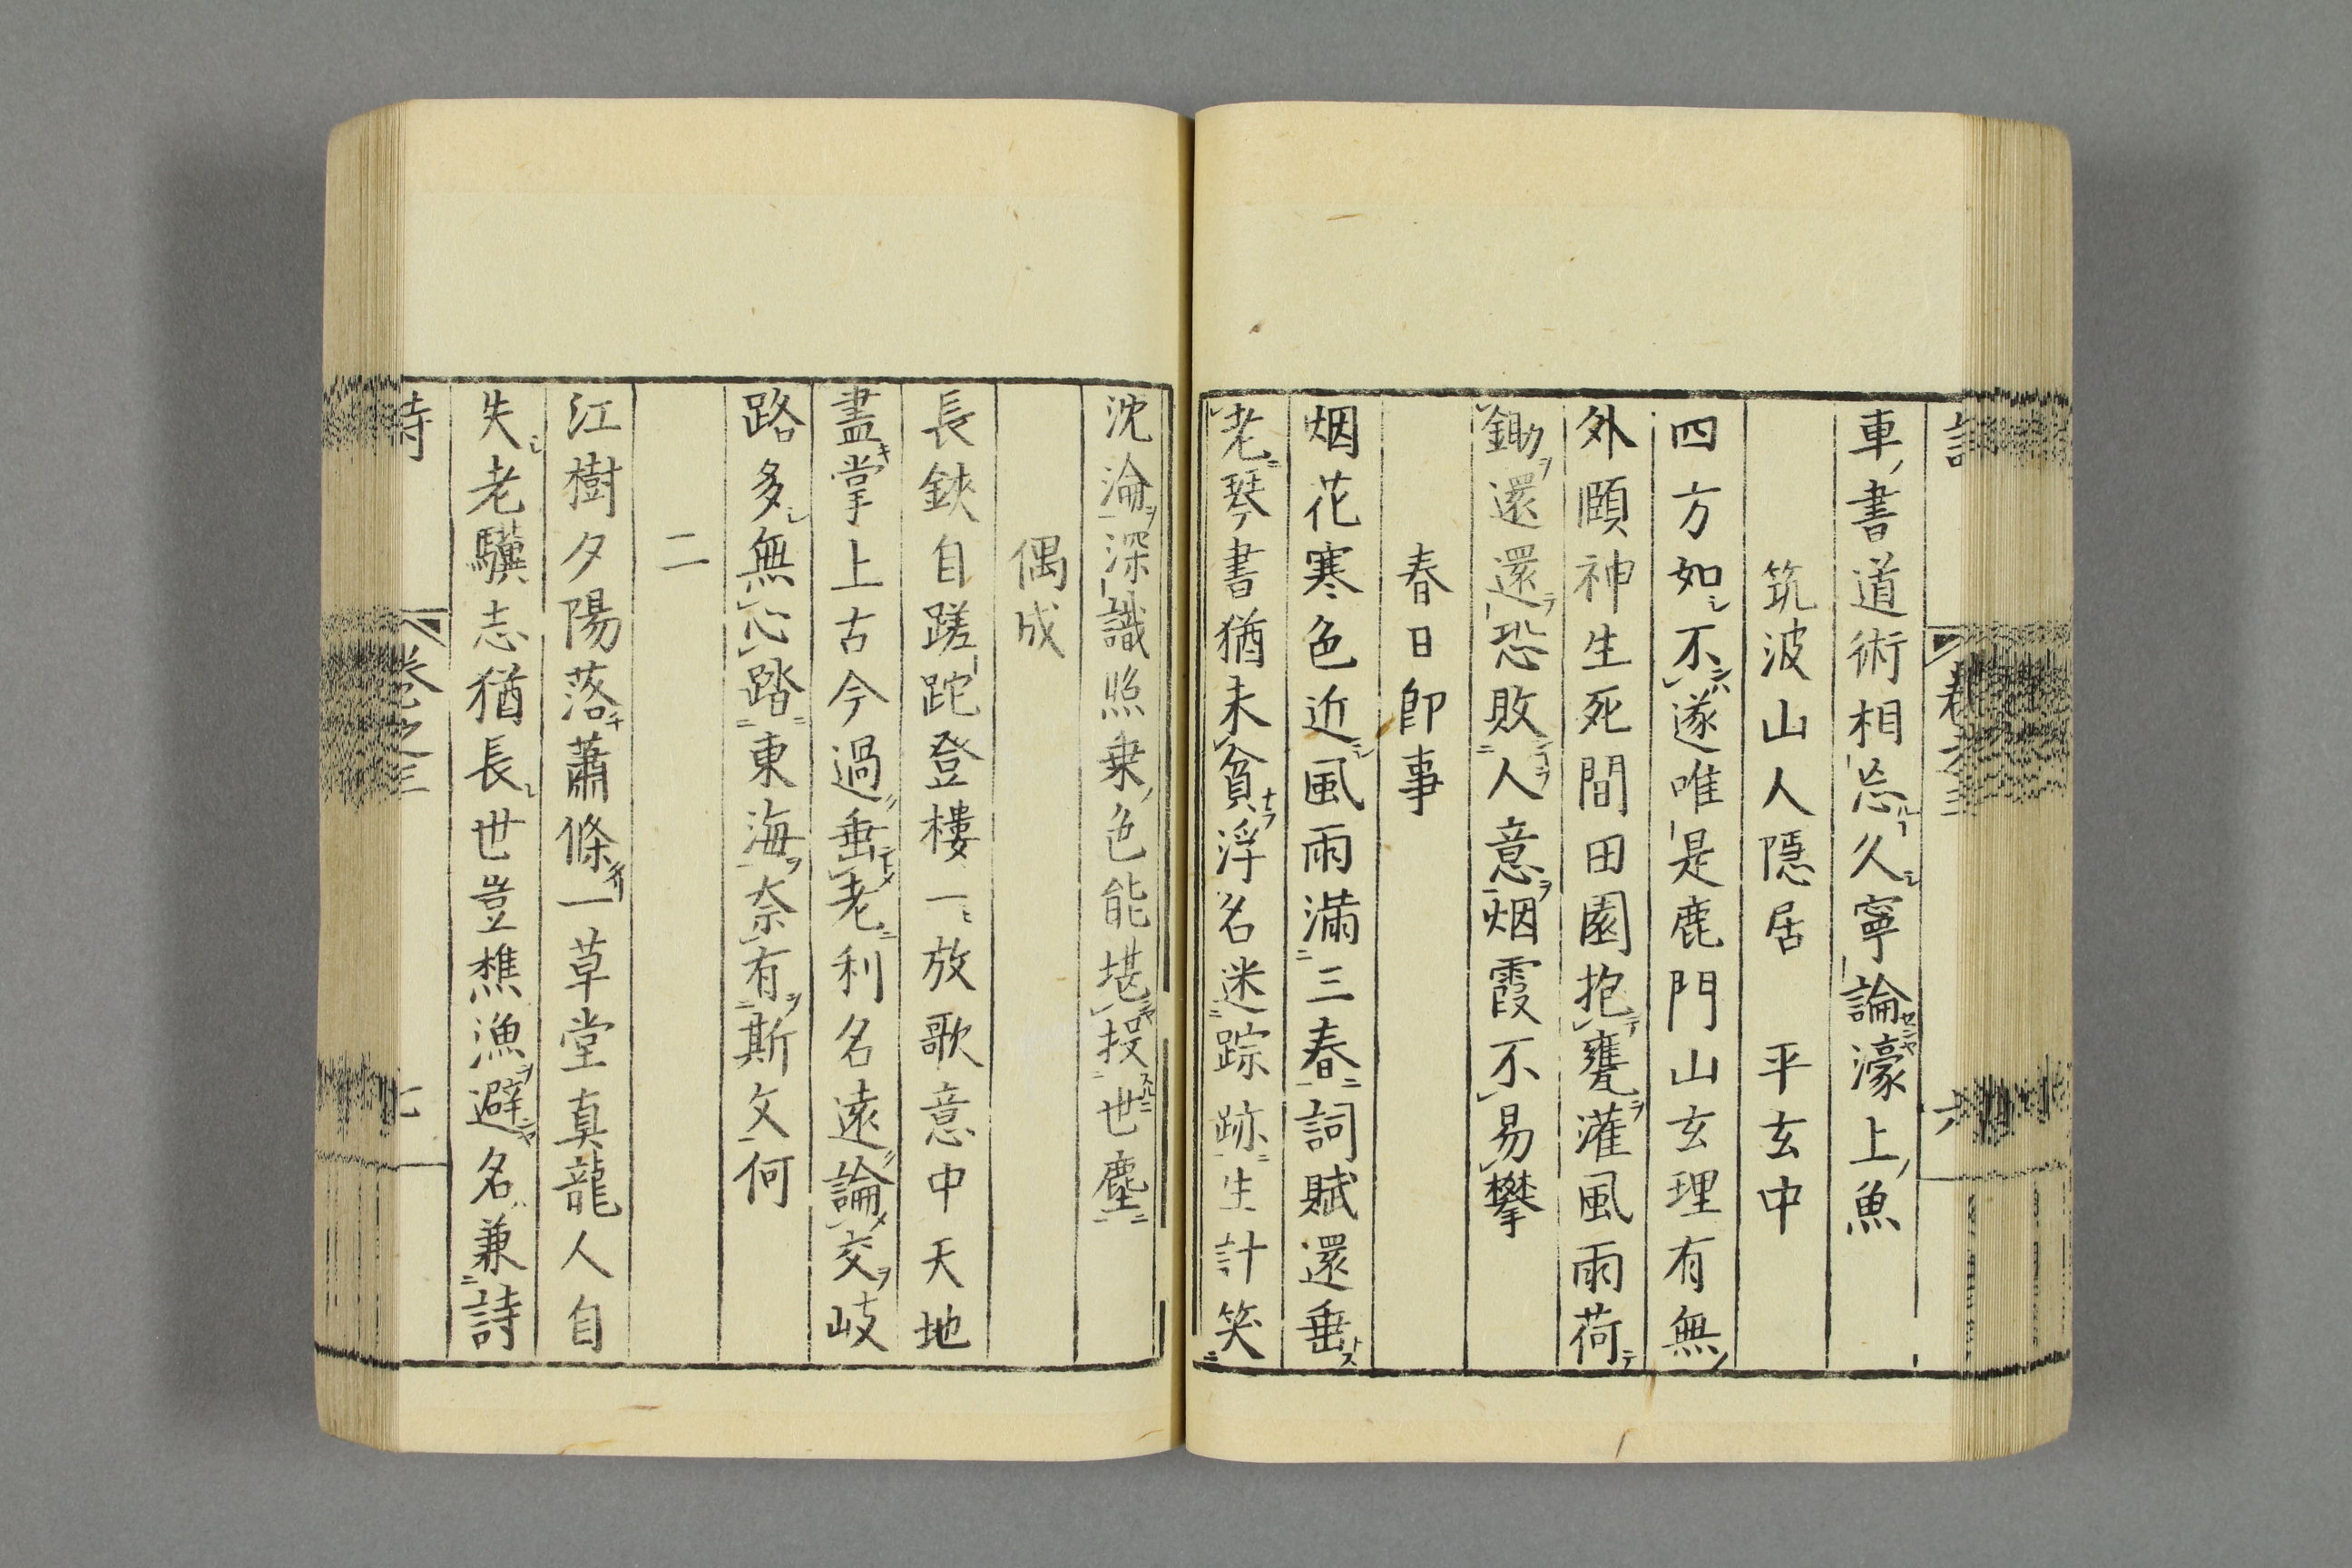 車書道術相忘久寧論濠上魚
筑波山人隱居　平玄中
四方如不遂唯是鹿門山玄理有無
外頤神生死間田園抱甕灌風雨荷
鋤還還恐敗人意烟霞不易攀
春日卽事
烟花寒色近風雨滿三春詞賦還垂
老琴書猶未貧浮名迷踪跡生計笑
沈淪深識照乗色能堪投世塵
偶成
長鋏自蹉跎登樓一放歌意中天地
盡掌上古今過垂老利名遠論交岐
路多無心踏東海奈有斯文何
二
江樹夕陽落蕭條一草堂真龍人自
失老驥志猶長世豈樵漁避名兼詩
卷之三
七